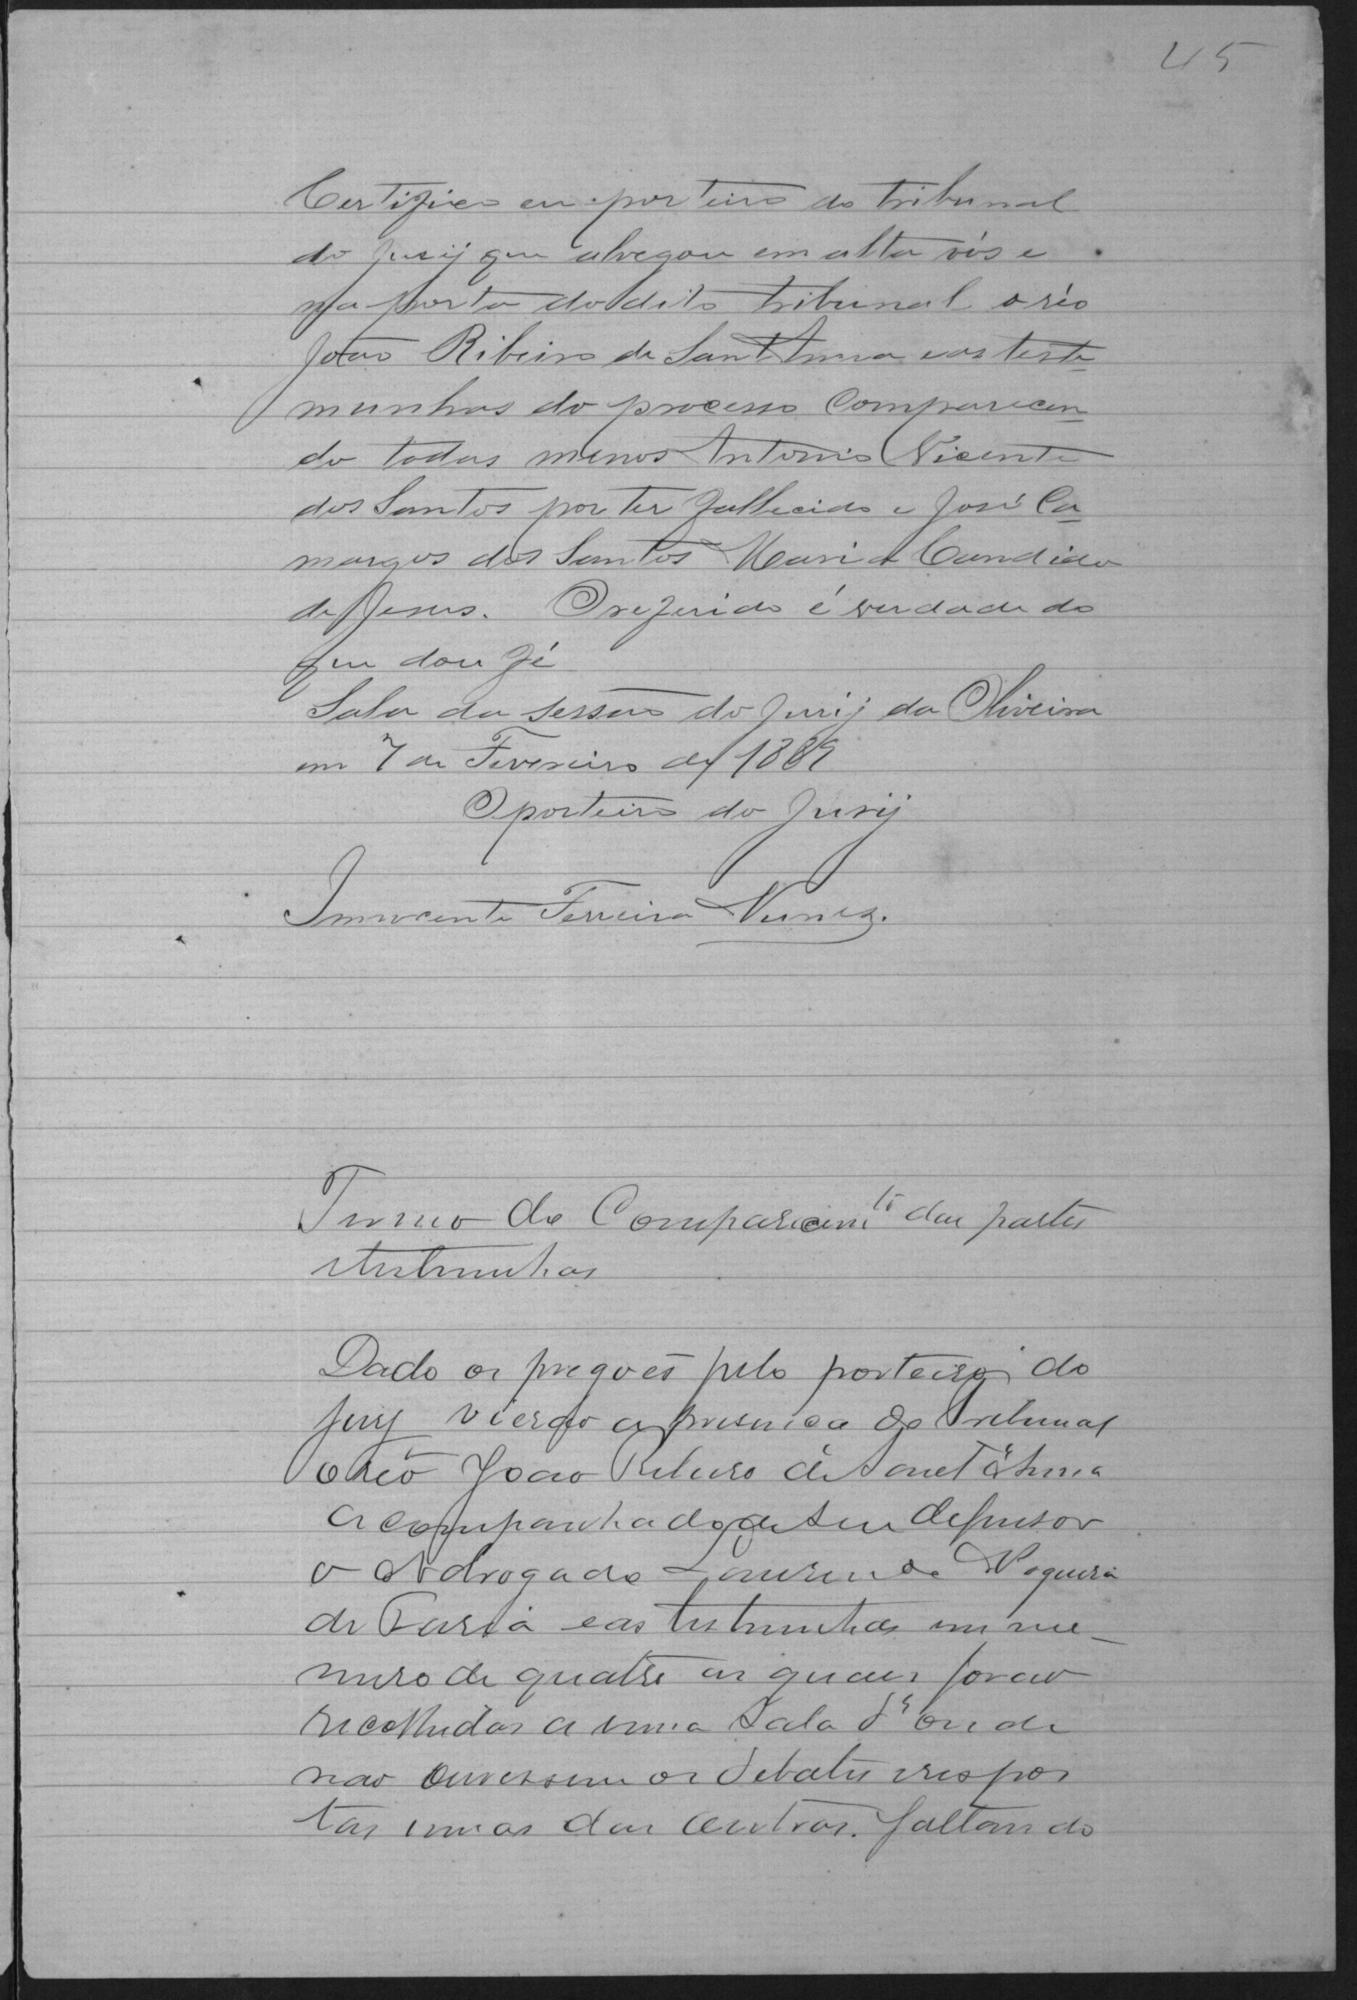 45
Certifico eu porteiro do tribunal
do jurij que alvegou em alta vós e
na porta do dito tribunal o réo
João Ribeiro de Sant Anna e as teste
munhas do processo Comparecen
do todas menos Antonio Vicente
dos Santos por ter fallecido e José Ca
margos dos Santos Maria Candida
de Jesus. O referido é verdade do
que dou fé
Sala da sessão do jurij da Oliveira
em 7 de Fevereiro de 1889
O porteiro do Jurij
Innocente Ferreira Nunes.
Termo de Comparecimto das partes
e testemunhas
Dado os pregões pelo porteiro do
jury vierão a presença do Tribunal
o réo João Ribeiro de Sant'Anna
acompanhado de seu defensor
o Advogado Nogueira
de Faria e as testemunhas em nu-
mero de quatro as quaes forão
recolhidas a uma sala d'onde
não ouvissem os debates e respos
tas umas das outras. faltando